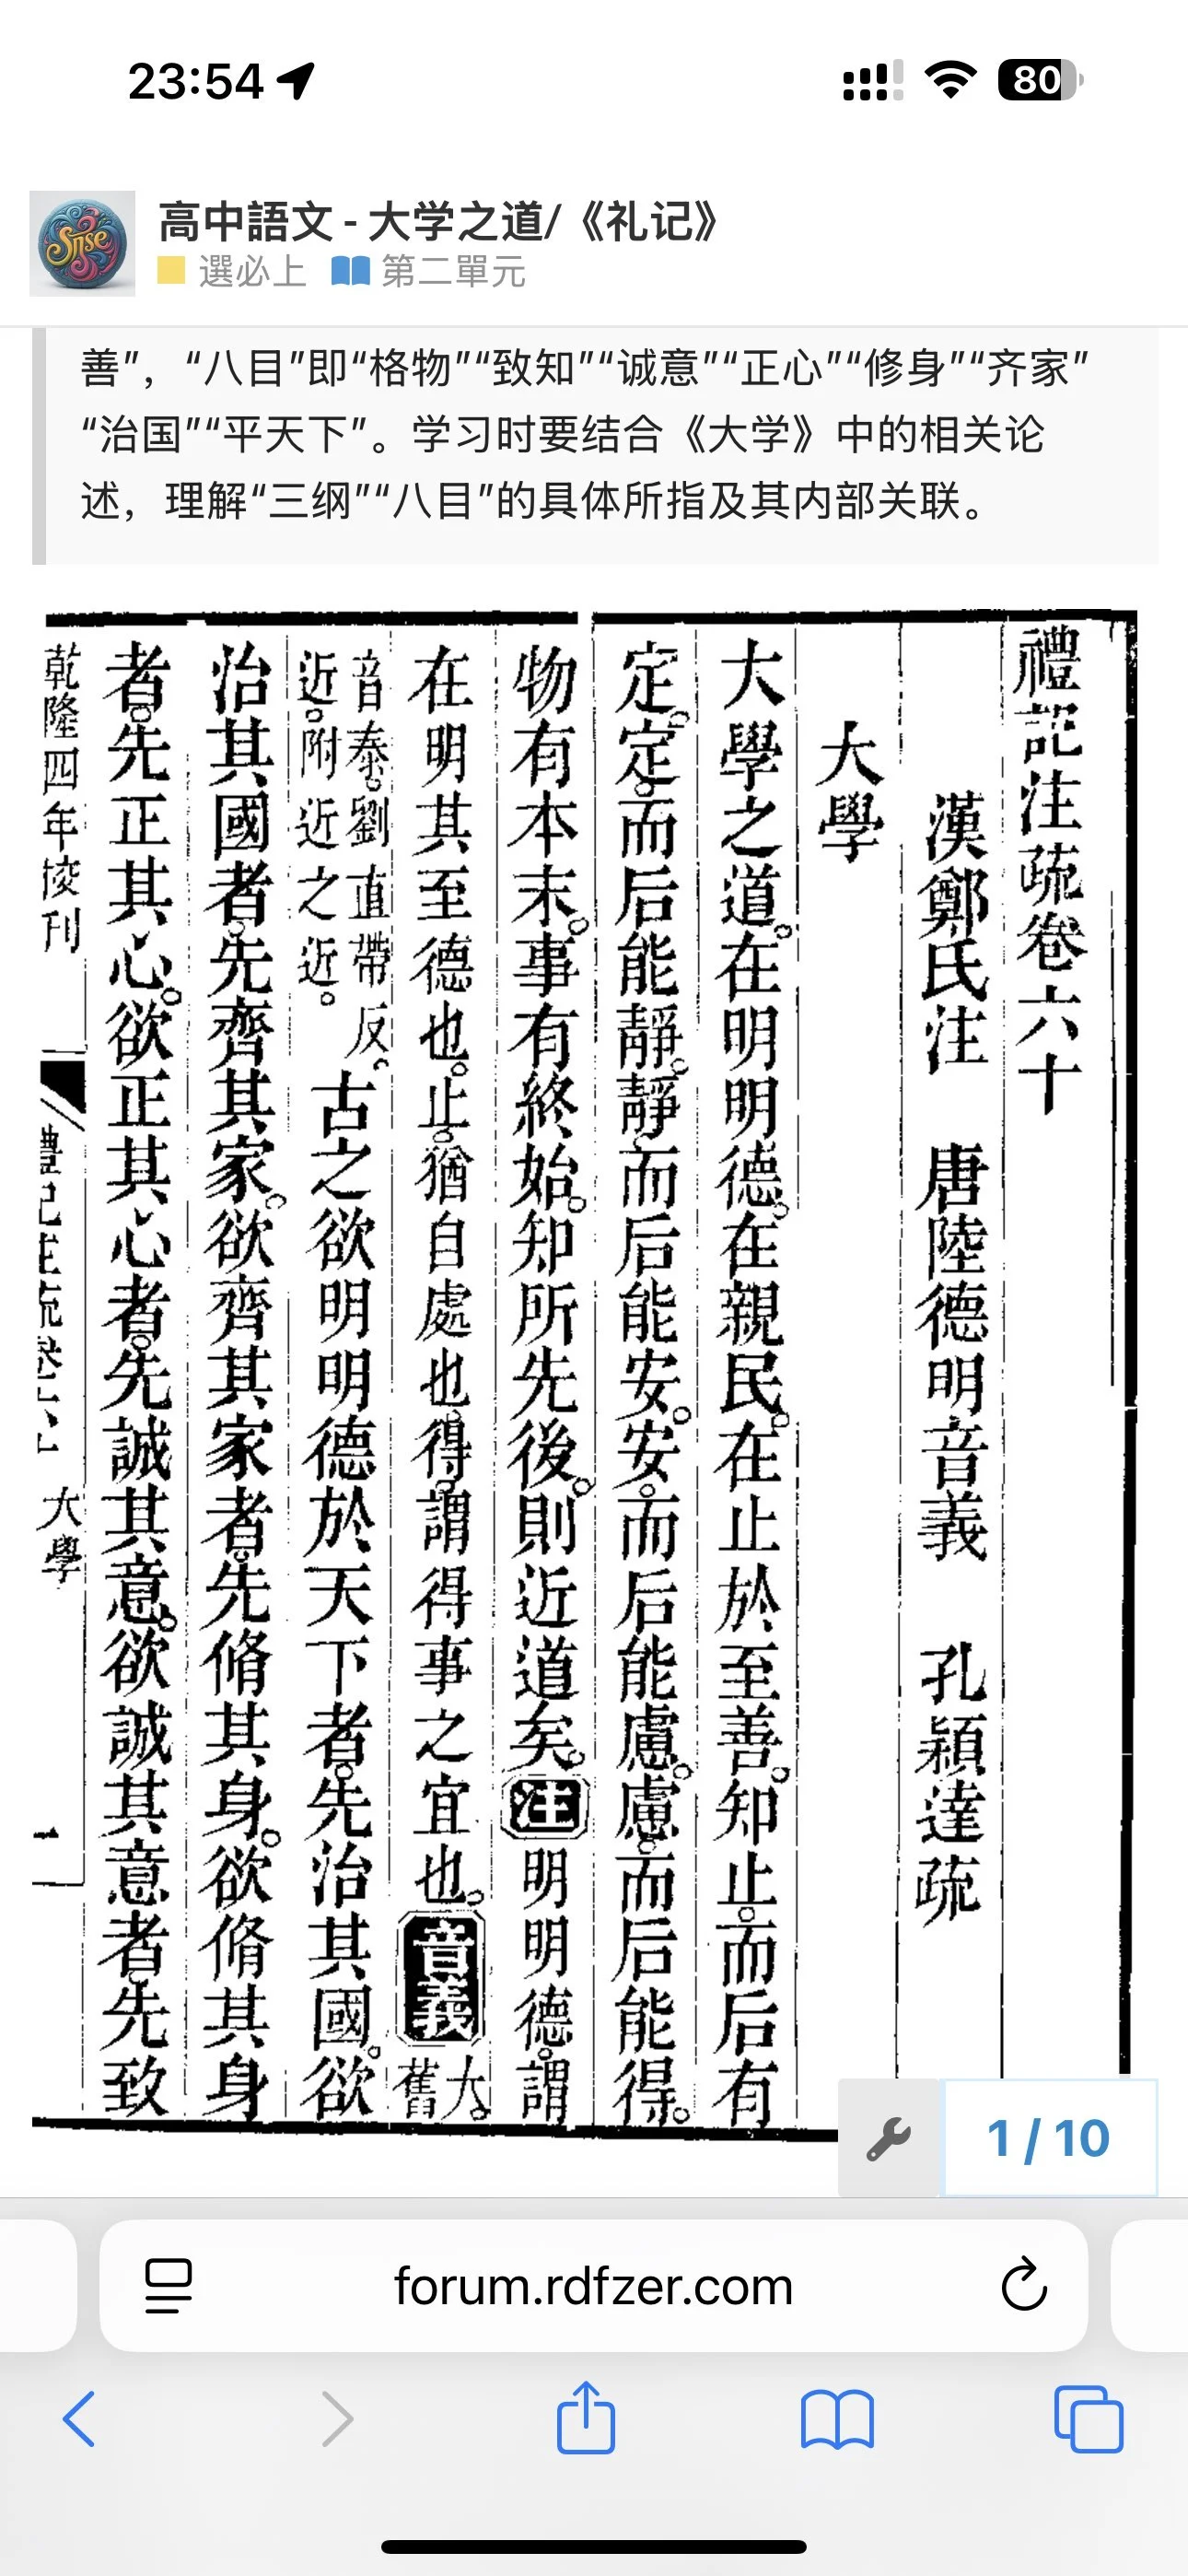 23:54
80
高中語文 - 大学之道/《礼记》
選必上 第二單元
善”，“八目”即“格物”“致知”“诚意”“正心”“修身”“齐家”
“治国”“平天下”。学习时要结合《大学》中的相关论
述，理解“三纲”“八目”的具体所指及其内部关联。
禮記注疏卷六十
漢鄭氏注 唐陸德明音義 孔穎達疏
大學
大學之道。在明明德。在親民。在止於至善。知止。而后有
定。定。而后能靜。靜。而后能安。安。而后能慮。慮。而后能得。
物有本末。事有終始。知所先後。則近道矣。注明明德。謂
在明其至德也。止。猶自處也。得。謂得事之宜也。音義大。舊
音泰。劉直帶反。
近。附近之近。
古之欲明明德於天下者。先治其國。欲
治其國者。先齊其家。欲齊其家者。先脩其身。欲脩其身
者。先正其心。欲正其心者。先誠其意。欲誠其意者。先致
乾隆四年校刊
禮記注疏卷六十 大學
一
1 / 10
forum.rdfzer.com